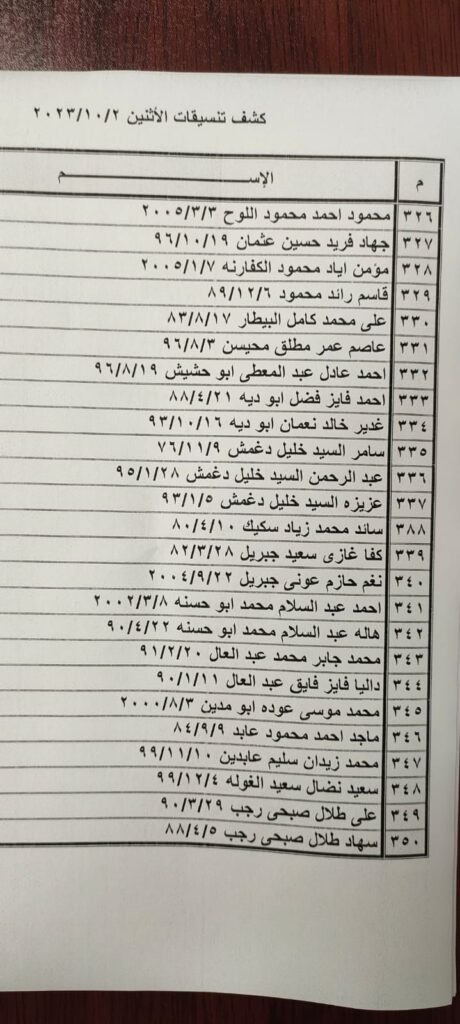 كشف تنسيقات الأثنين ٢٠٢٣/١٠/٢
م الإســـــــــــــم
٣٢٦ محمود احمد محمود اللوح ٢٠٠٥/٣/٣
٣٢٧ جهاد فريد حسين عثمان ٩٦/١٠/١٩
٣٢٨ مؤمن اياد محمود الكفارنه ٢٠٠٥/١/٧
٣٢٩ قاسم رائد محمود ٨٩/١٢/٦
٣٣٠ على محمد كامل البيطار ٨٣/٨/١٧
٣٣١ عاصم عمر مطلق محيسن ٩٦/٨/٣
٣٣٢ احمد عادل عبد المعطى ابو حشيش ٩٦/٨/١٩
٣٣٣ احمد فايز فضل ابو ديه ٨٨/٤/٢١
٣٣٤ غدير خالد نعمان ابو ديه ٩٣/١٠/١٦
٣٣٥ سامر السيد خليل دغمش ٧٦/١١/٩
٣٣٦ عبد الرحمن السيد خليل دغمش ٩٥/١/٢٨
٣٣٧ عزيزه السيد خليل دغمش ٩٣/١/٥
٣٨٨ سائد محمد زياد سكيك ٨٠/٤/١٠
٣٣٩ كفا غازى سعيد جبريل ٨٢/٣/٢٨
٣٤٠ نغم حازم عونى جبريل ٢٠٠٤/٩/٢٢
٣٤١ احمد عبد السلام محمد ابو حسنه ٢٠٠٢/٣/٨
٣٤٢ هاله عبد السلام محمد ابو حسنه ٩٠/٤/٢٢
٣٤٣ محمد جابر محمد عبد العال ٩١/٢/٢٠
٣٤٤ داليا فايز فايق عبد العال ٩٠/١/١١
٣٤٥ محمد موسى عوده ابو مدين ٢٠٠٠/٨/٣
٣٤٦ ماجد احمد محمود عابد ٨٤/٩/٩
٣٤٧ محمد زيدان سليم عابدين ٩٩/١١/١٠
٣٤٨ سعيد نضال سعيد الغوله ٩٩/١٢/٤
٣٤٩ على طلال صبحى رجب ٩٠/٣/٢٩
٣٥٠ سهاد طلال صبحى رجب ٨٨/٤/٥